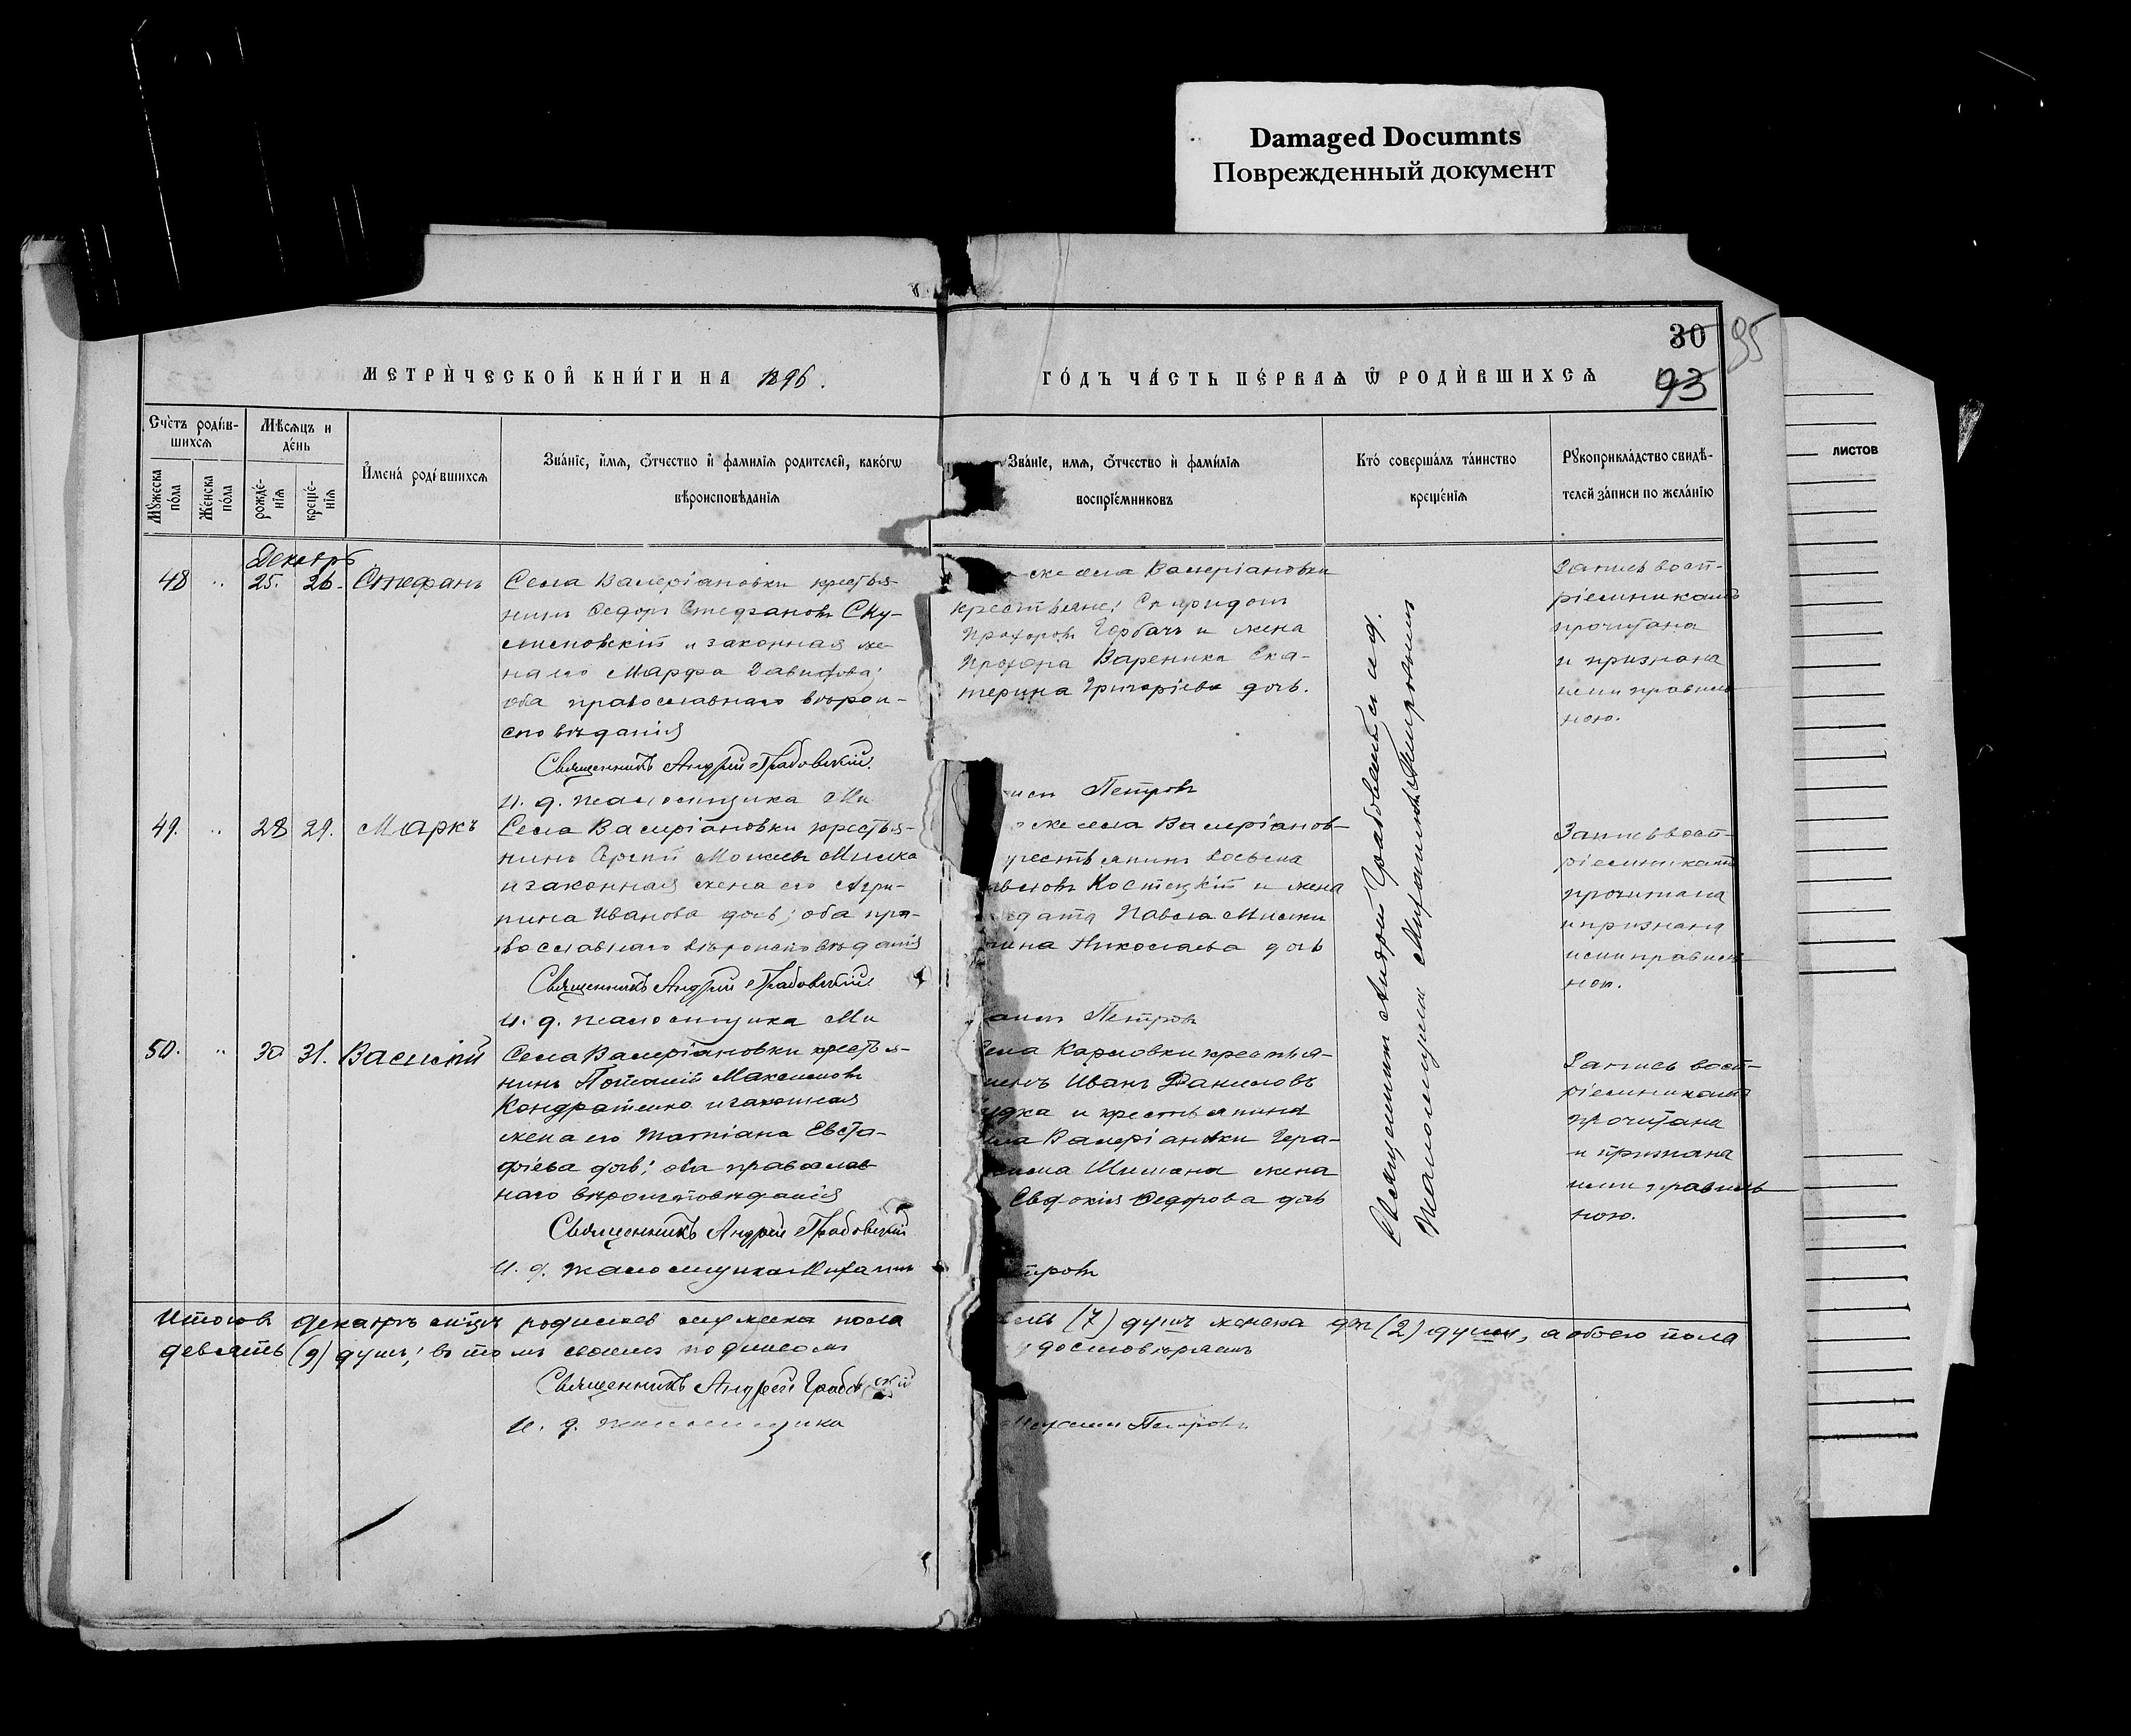 Damaged Documnts
Поврежденный документ
30
95
93
МЕТРИ́ЧЕСКОЙ КНИ́ГИ НА 1896.
ГО́ДЪ ЧА́СТЬ ПЕ́РВАѦ Ѿ РОДИ́ВШИХСѦ
Сче́тъ роди́в-
шихсѧ
Мѣ́сѧцъ и
де́нь
Мꙋ́жеска
по́ла
Же́нска
по́ла
рожде́-
нїѧ
креще́-
нїѧ
И҆мена́ роди́вшихсѧ
Зва́нїе, и҆́мѧ, ѻ҆́тчество и҆ фами́лїѧ родителей, како́гѡ
вѣроисповѣ́данїѧ
Зва́нїе, имѧ, ѻ҆́тчество и҆ фами́лїѧ
воспрїе́мниковъ
Кто́ соверша́лъ та́инство
креще́нїѧ
Рꙋкоприкла́дство свидѣ́-
телей за́писи по жела́нїю
листов
Декабрь
48 " 25. 26. Стефанъ
Села Валеріановки крестья-
нинъ Ѳедоръ Стефановъ
и законная же-
на его Марфа Давидова;
оба православнаго вѣрои-
сповѣданія
Священникъ Андрей Грабовскій.
И. д. псаломщика Ми
же села Валеріановки
крестьяне: Спиридонъ
Прохоровъ Горбачъ и жена
Прохора Вареника Ека-
терина Григоріева дочь.
Петровъ
Запись восп-
ріемникамъ
прочитана
и признана
ими правиль-
ною.
49. " 28 29. Маркъ
Села Валеріановки крестья-
нинъ Сергій Моисеевъ Мишка
и законная жена его Агри-
пина Иванова дочь; оба пра-
вославнаго вѣроисповѣданія
Священникъ Андрей Грабовскій
И. д. псаломщика Ми
же села Валеріанов-
Костецкій и жена
Павла Мишки
Николаева дочь
Петровъ
Запись восп-
ріемникамъ
прочитана
и признана
ими правиль-
ною.
50. " 30 31. Василій
Села Валеріановки крестья-
нинъ Потапій Максимовъ
Кондратенко и законная
жена его Татіана Евста-
фіева дочь; оба православ-
наго вѣроисповѣданія
Священникъ Андрей Грабовскій
И. д. псаломщика Михаилъ
Села Карловки крестья-
Иванъ Даниловъ
и крестьянина
Валеріановки Гера-
сима жена
Евдокія Ѳедорова дочь
Петровъ
Запись восп-
ріемникамъ
прочитана
и признана
ими правиль-
ною.
Священникъ Андрей Грабовскій и и.д.
псаломщика Михаилъ Петровъ
Итого въ декабрѣ мѣсяцѣ родилось мужеска пола
(7) душъ женска двѣ (2) души, а обоего пола
девять (9) душъ; въ томъ своимъ подписомъ
удостовѣряемъ
Священникъ Андрей Грабовскій
И. д. псаломщика
Михаилъ Петровъ